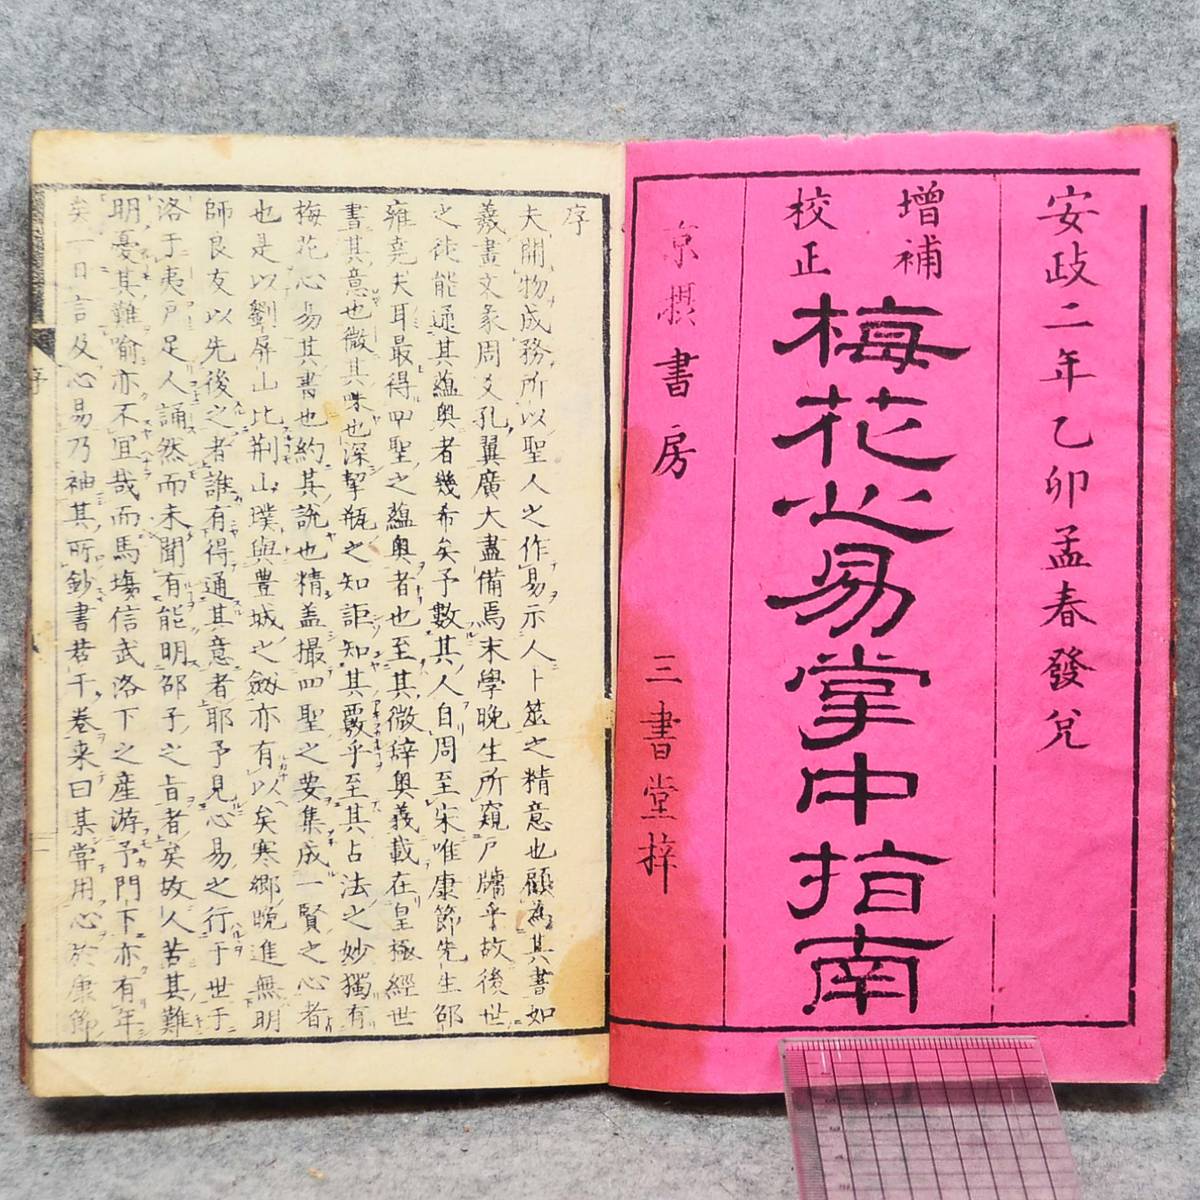 安政二年乙卯孟春發兌
增補
校正
梅花心易掌中指南
京攝書房
三書堂梓
序
夫開物成務所以聖人之作易示人卜筮之精意也顧為其書如
羲畫文彖周爻孔翼廣大盡備焉末學晚生所窺戶牖乎故後世
之徒能通其蘊奧者幾希矣予數其人自周至宋唯康節先生邵
雍堯夫耳最得四聖之蘊奧者也至其微辞奧義載在皇極經世
書其意也微其味也深挈瓶之知詎知其覈乎至其占法之妙獨有
梅花心易其書也約其說也精盖撮四聖之要集成一賢之心者
也是以劉屏山比荆山璞與豊城之劔亦有以矣寒鄉晚進無明
師良友以先後之者誰有得通其意者耶予見心易之行于世于
洛于夷戶足人誦然而未聞有能明邵子之旨者矣故人苦其難
明憂其難喻亦不宜哉而馬塲信武洛下之產游予門下亦有年
矣一日言及心易乃袖其所鈔書若干卷来曰某嘗用心於康節
序